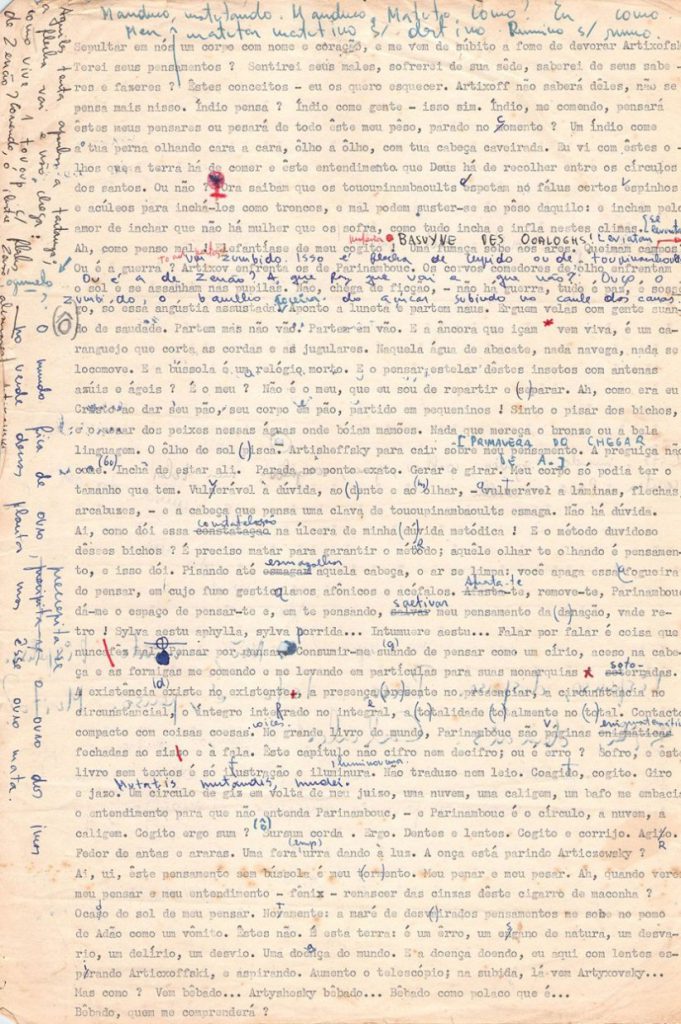 Manduco, matutando. Manduco, Matuto, como! Eu como
matutar matutino s/ destino. Rumino s/ rumo.
Sepultar em nós um corpo com nome e coração, e me vem de súbito a fome de devorar Artixofsk
Terei seus pensamentos ? Sentirei seus males, sofrerei de sua sêde, saberei de seus sabe -
res e fazeres ? Êstes conceitos - eu os quero esquecer. Artixoff não saberá dêles, não se
pensa mais nisso. Índio pensa ? Índio come gente - isso sim. Índio, me comendo, pensará
êstes meus pensares ou pesará de todo êste meu pêso, parado no momento ? Um índio come
a tua perna olhando cara a cara, ôlho a ôlho, com tua cabeça caveirada. Eu vi com êstes o -
lhos que a terra há de comer e êste entendimento que Deus há de recolher entre os círculos
dos santos. Ou não ? Ora saibam que os tououpinambaoults espetam no fálus certos espinhos
e acúleos para inchá-los como troncos, e mal podem suster-se ao pêso daquilo: e incham pelo
amor de inchar que não há mulher que os sofra, como tudo incha e infla nestes climas.
Leviatan
BASVYVE DES OOALOGHS!
Ah, como penso mal elefantíase de meu cogito ! Uma fumaça sobe aos ares. Queimam campos
vai zumbido. Isso é flecha de cupido ou de toupinambou
Ou é a guerra ? Artixov enfrenta os de Parinambouc. Os corvos comedores de ôlho enfrentam
Ou é a de Zenão? A que fez que vai e que não? Ouço, o
o sol e se assanham nas pupilas. Não, chega de ficção, - não há guerra, tudo é paz, e sosse
zumbido, o barulho do açúcar subindo no caule das canas.
go, só essa angústia assustada. Aponto a luneta e partem naus. Erguem velas com gente suan-
do de saudade. Partem mas não vão. Partem em vão. E a âncora que içam vem viva, é um ca-
ranguejo que corta as cordas e as jugulares. Naquela água de abacate, nada navega, nada se
locomove. E a bússola é um relógio morto. E o pensar estelar dêstes insetos com antenas
azúis e ágeis ? É o meu ? Não é o meu, que eu sou de repartir e (s)eparar. Ah, como era eu
Cristo ao dar seu pão, seu corpo em pão, partido em pequeninos ! Sinto o pisar dos bichos,
e o nadar dos peixes nessas águas onde bóiam mamões. Nada que mereça o bronze ou a bela
[PRIMAVERA DO CHEGAR
DE A.]
linguagem. O ôlho do sol pisca. Artisheffsky para cair sobre meu pensamento. A preguiça não
(bo)
coae. Inchá de estar ali. Parada no ponto exato. Gerar e girar. Meu corpo só podia ter o
tamanho que tem. Vulnerável à dúvida, ao(d)ente e ao olhar, - vulnerável a lâminas, flechas,
arcabuzes, - e a cabeça que pensa uma clava de tououpinambaoults esmaga. Não há dúvida.
Ai, como dói essa constatação na úlcera de minha(dú)vida metódica ! E o método duvidoso
dêsses bichos ? É preciso matar para garantir o método; aquêle olhar te olhando é pensamen-
esmigalhar
to, e isso dói. Pisando até esmagar aquela cabeça, o ar se limpa: você apaga essa fogueira
Afasta-te
do pensar, em cujo fumo gesticulamos afônicos e acéfalos. Afasta-te, remove-te, Parinambouc
dá-me o espaço de pensar-te e, em te pensando, salvar meu pensamento da(da)nação, vade re-
tro ! Sylva aestu aphylla, sylva horrida... Intumuere aestu... Falar por falar é coisa que
nunca fez mal. Pensar por pensar. Consumir-me sofrendo de pensar como um círio, aceso na cabe-
soto-
ça e as formigas me comendo e me levando em partículas para suas monarquias soterradas.
A existencia existe no existente, a presença(pre)sente no precampiar, a circunstância no
circunstancial, o íntegro integrado no integral, a(to)talidade to(t)almente no(to)tal. Contacto
compacto com coisas coesas. No grande livro do mundo, Parinambouc são páginas enigmáticas
fechadas ao siso e à fala. Êste capítulo não cifro nem decifro; ou é erro ? Sofro, e êste
livro sem textos é só ilustração e iluminura. Não traduzo nem leio. Coagido, cogito. Giro
Mutatis mutandis, mudei.
e jazo. Um círculo de giz em volta de meu juizo, uma nuvem, uma caligem, um bafo me embacia
o entendimento para que não entenda Parinambouc, - e Parinambouc é o círculo, a nuvem, a
caligem. Cogito ergo sum ? Sursum corda . Ergo. Dentes e lentes. Cogito e corrijo. Agito.
Fedor de antas e araras. Uma fera urra dando à luz. A onça está parindo Articzewsky ?
Ai, ui, êste pensamento sem bússola é meu tormento. Meu penar e meu pesar. Ah, quando verei
meu pensar e meu entendimento - fênix - renascer das cinzas dêste cigarro de maconha ?
Ocaso do sol de meu pensar. Novamente: a maré de desvairados pensamentos me sobe no pomo
de Adão como um vômito. Êstes não. É esta terra: é um êrro, um engano de natura, um desva-
rio, um delírio, um desvio. Uma doença do mundo. E a doença doendo, eu aqui com lentes es-
pirando Articxoffski, e aspirando. Aumento o telescópio; na subida, lá vem Artyxovsky...
Mas como ? Vem bêbado... Artyshesky bêbado... Bêbado como polaco que é...
Bêbado, quem me compreenderá ?
Aquiles tanta a tartaruga,
a flecha vai e não chega:
como vive 1 toupi
de Zenão?
O mundo fica de ovo,
precipita-se o ovo dos
no verde desses plantas mas esse ovo mata.